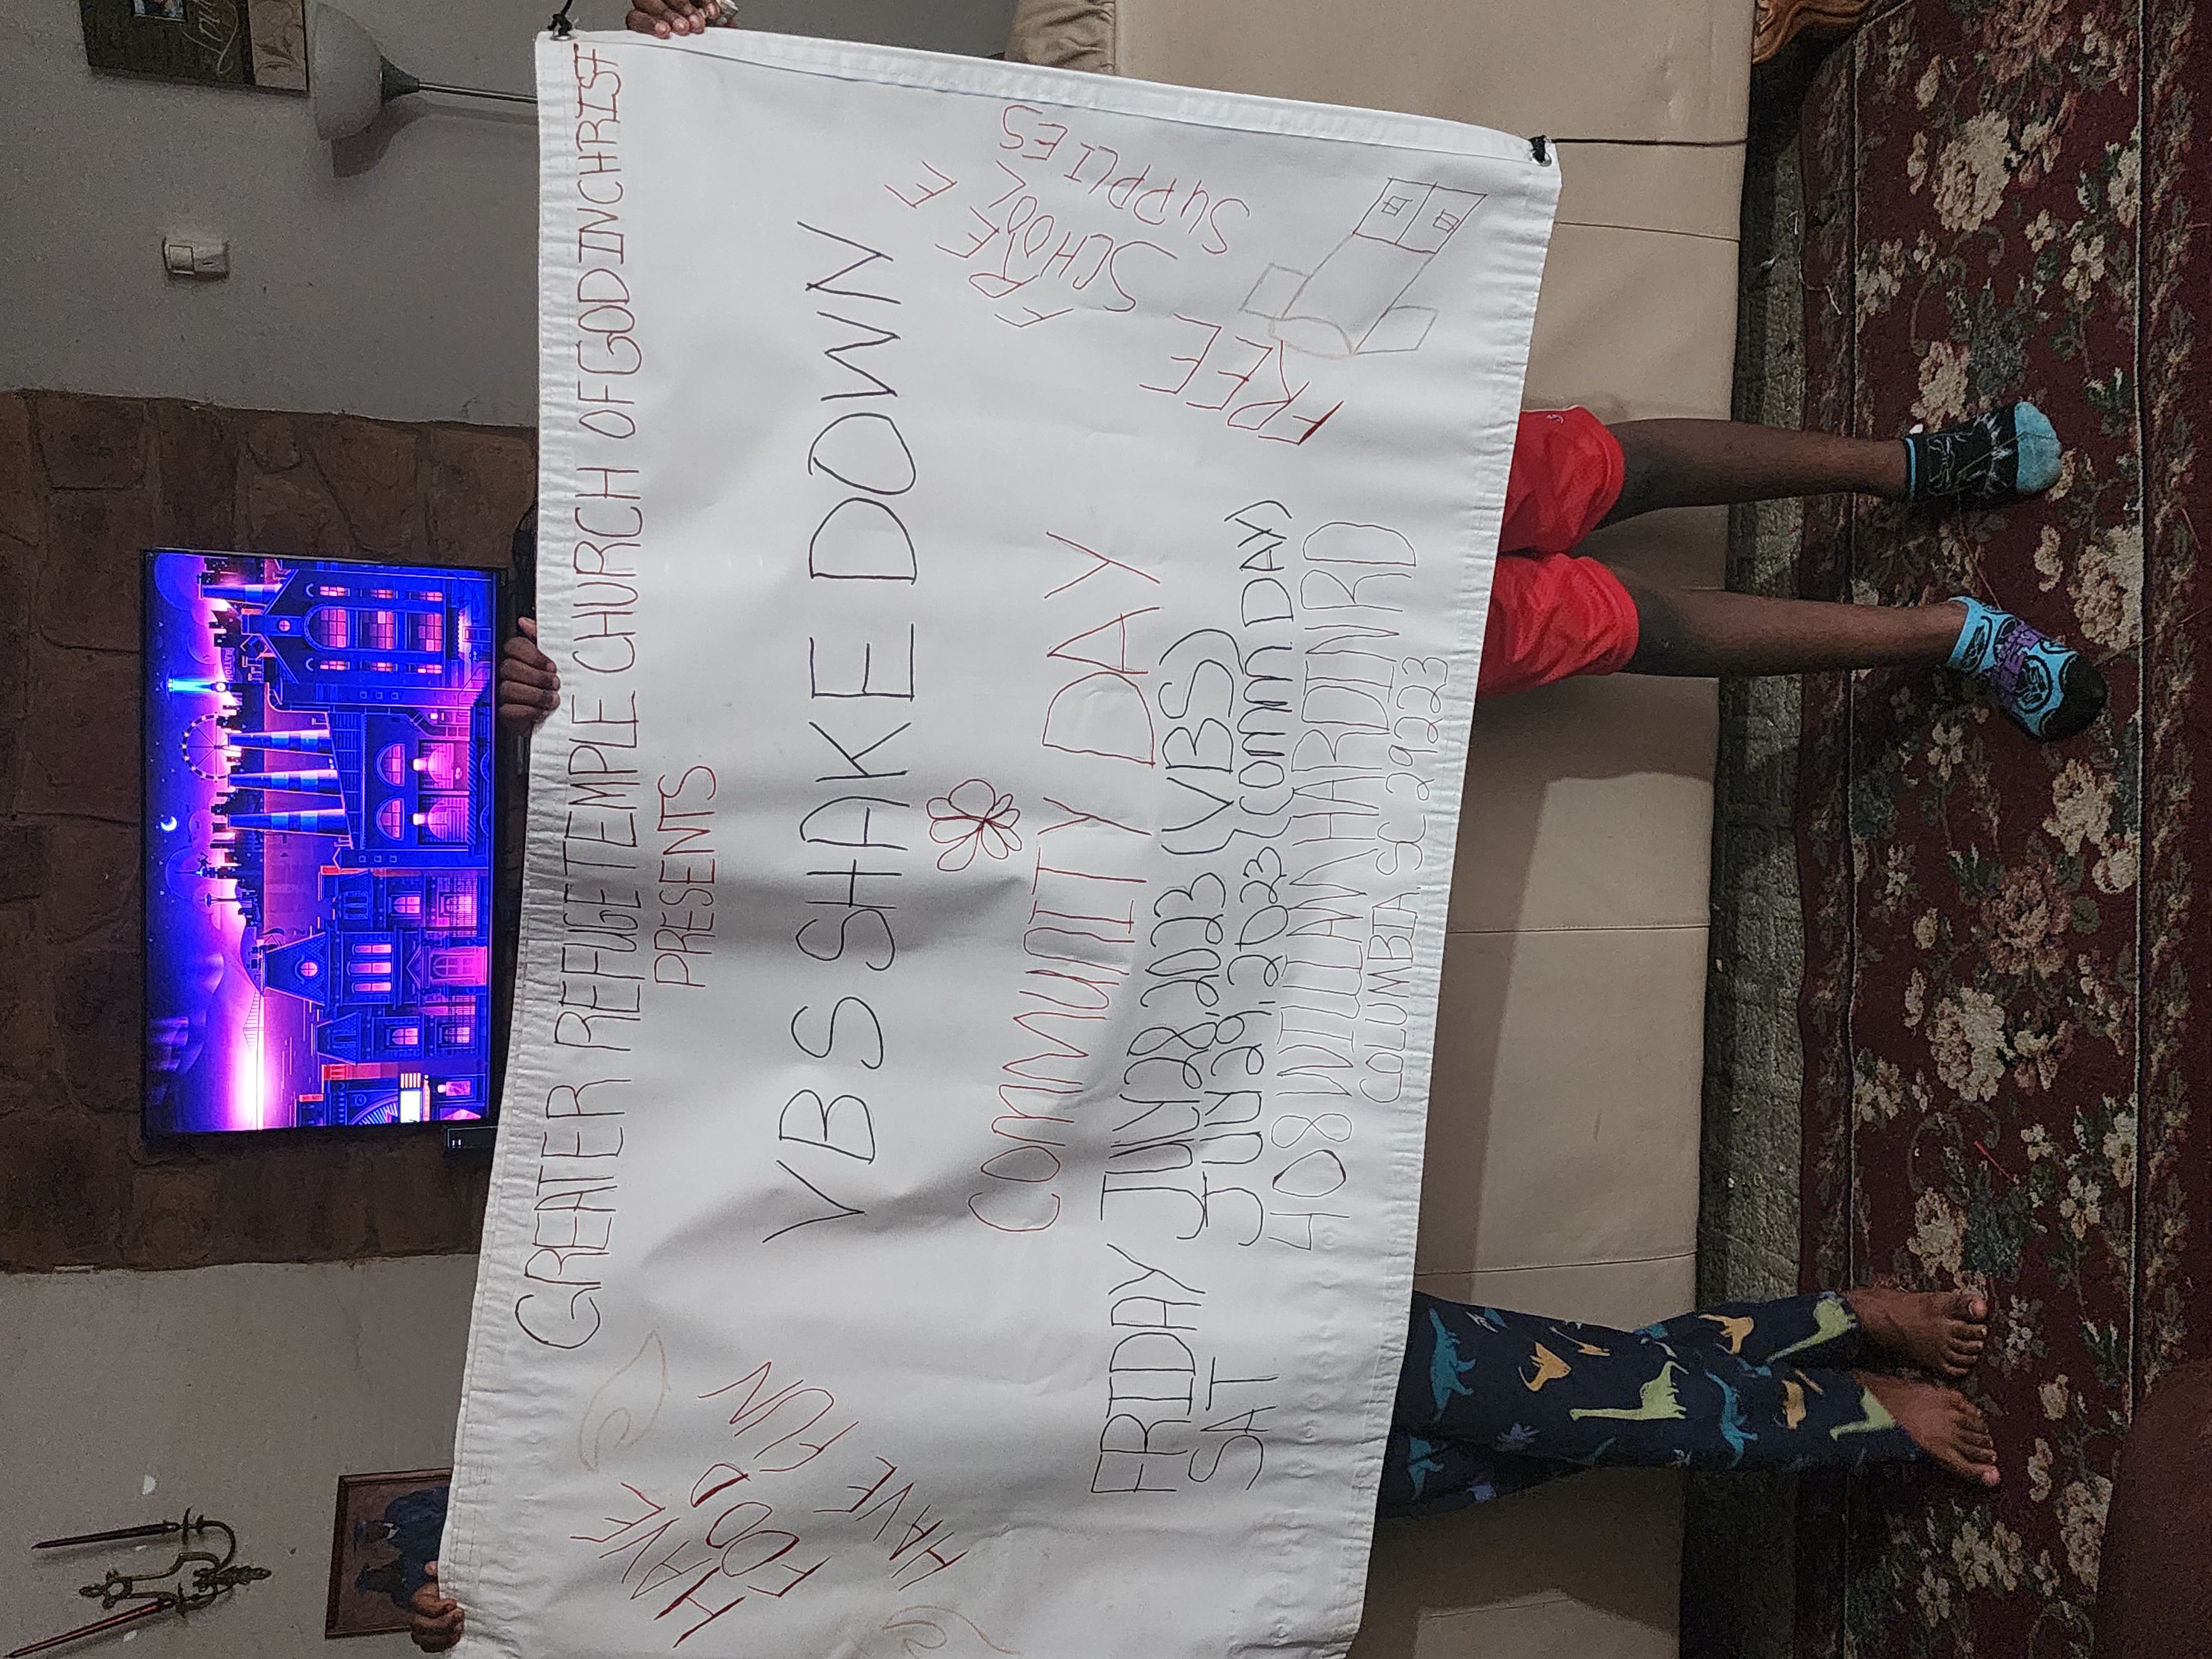 GREATER REFUGE TEMPLE CHURCH OF GOD IN CHRIST
PRESENTS
VBS SHAKE DOWN
COMMUNITY DAY
FRIDAY JULY 28, 2023 (VBS)
SAT JULY 29, 2023 (COMM DAY)
408 WILLIAM HARDIN RD
COLUMBIA, SC 29223
HAVE
FOOD
HAVE FUN
FREE
SCHOOL
SUPPLIES
FREE